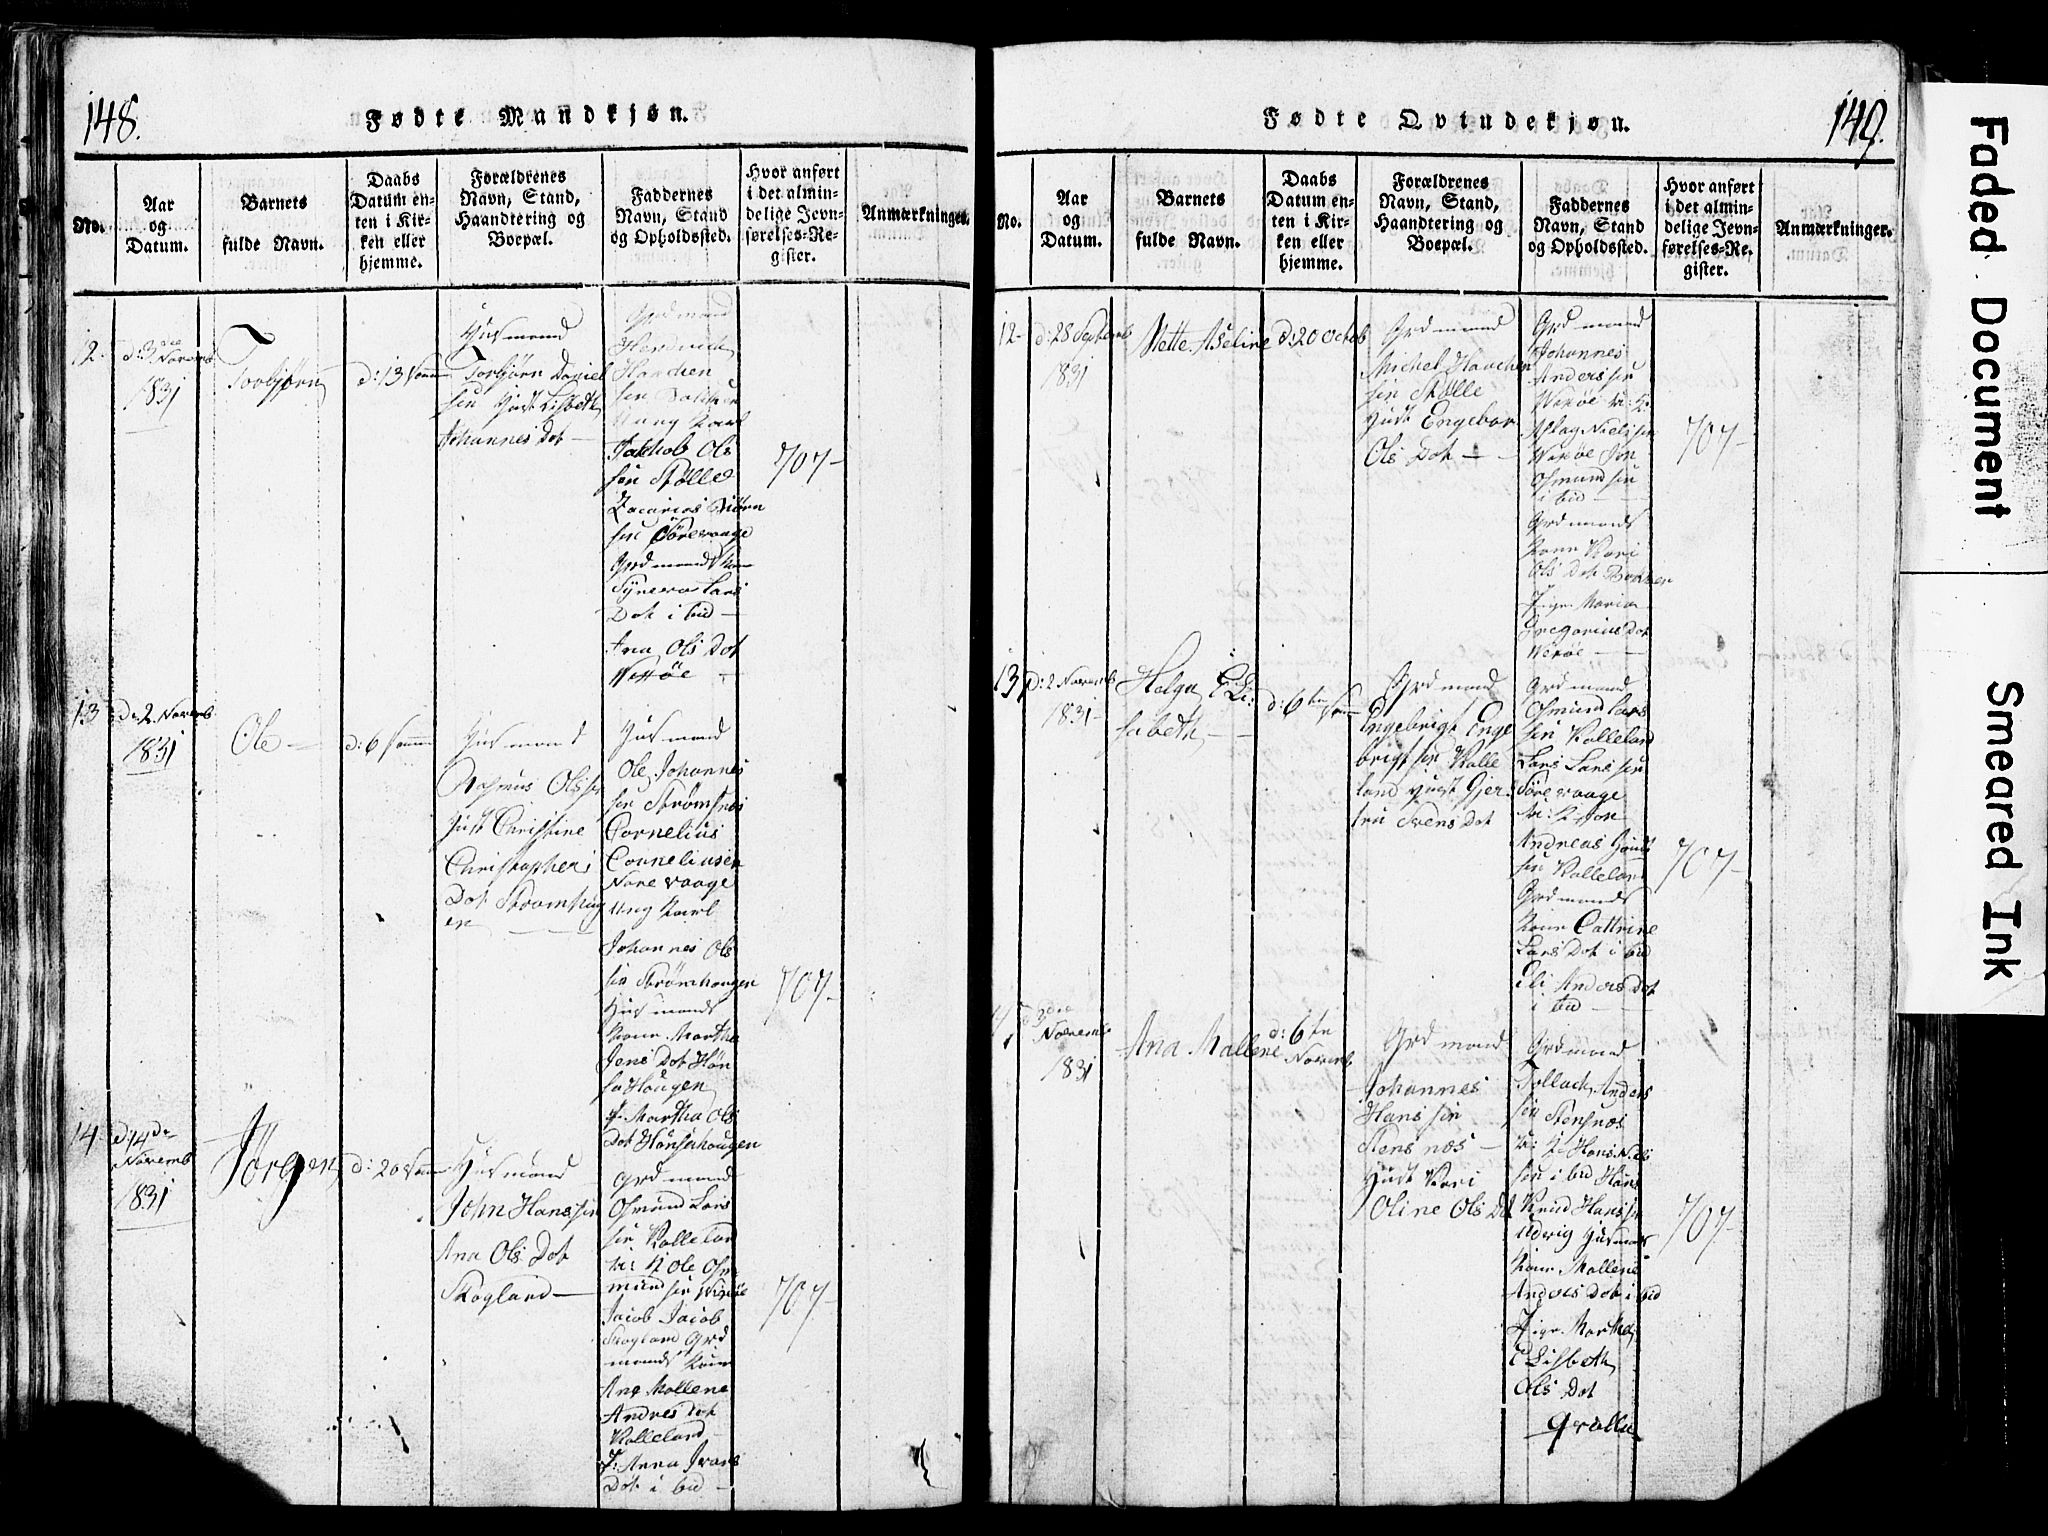 148.
Fødte Mandkjøn.
No.
Aar
og
Datum.
Barnets
fulde Navn.
Daabs
Datum en-
ten i Kir-
ken eller
hjemme.
Forældrenes
Navn, Stand,
Haandtering og
Boepæl.
Faddernes
Navn, Stand
og Opholdssted.
Hvor anført
i det almin-
delige Jevn-
førelses-Re-
gister.
Anmærkninger.
12.
d: 3die
Novemb
1831
Torbjørn
d: 13
Huusmand
Torbjørn Daniel
sen Hust Lisbeth
Johannes Dot
Grdmand
sen
Ung Karl
Jakkob Ols
sen Stølle
Zacarias Biørn
sen Sørevaage
Grdmands Kone
Syneva Lars
Dot i bid
Ana Ols Dot
707-
13
d: 2 Novemb
1831
Ole
d: 6
Huusmand
Rasmus Ols
Hust Christine
Christopher
Dot Strømhug
en
Huusmand
Ole Johannes
sen Strømsnes
Cornelius
Corneliusen
Norevaage
Ung Karl
Johannes Ols
sen Strømhougen
Huusmands
Kone Martha
Jens Dot Høn
sa Hougen
P. Martha Ols
Dot Hønsahougen
707-
14
d: 14de
Novemb
1831
Jørgen
d: 20
Huusmand
John Hanssen
Ana Ols Dot
Skogland
Grdmand
Osmund Lars
sen Kolleland
Ole Os-
mundsen
Jacob Jacob
Skogland Grd
mands Kone
Ane Mallene
Andres Dot
Kolleland
P: Anna Ivars
Dot i bid
707-
149.
Fødte Qvindekjøn.
No.
Aar
og
Datum.
Barnets
fulde Navn.
Daabs
Datum en-
ten i Kir-
ken eller
hjemme.
Forældrenes
Navn, Stand,
Haandtering og
Boepæl.
Faddernes
Navn, Stand
og Opholdssted.
Hvor anført
i det almin-
delige Jevn-
førelses-Re-
gister.
Anmærkninger.
12-
d: 28 Septemb
1831
Mette Aseline
d: 20 Octob
Grdmand
Michel Haachen
sen Stølle
Hust Engebor
Ols Dot
Grdmand
Johannes
Anderssen
Aslag Nielssen
Osmundsen
i bid
Grdmands
Kone Kari
Ols Dot
Pige Maria
Gregorius Dot
707-
13
d: 2 Novemb
1831-
Helga Eli-
sabeth
d: 6te
Grdmand
Engebrigt Enge
brigtsen Kolle
land Hust Gjer
tru Svens Dot
Grdmand
Osmund Lars
sen Kolleland
Lars Larssen
Sørevaage
Andreas
sen Kolleland
Grdmands
Kone Cattrine
Lars Dot i bid
Eli Anders Dot
i bid
707-
3die
Novemb
1831
Ana Mallene
d: 6te
Novemb
Grdmand
Johannes
Hanssen
Stensnæs
Hust Kari
Oline Ols Dt
Grdmand
Tollack Anders
sen Stensnæs
Hans Niels
sen i bid
Knud Hanssen
Udvig Huusmands
Kone Mallene
Anders Dot i bid
Pige Martha
Elisbeth
Ols Dot
707-
Faded Document
Smeared Ink